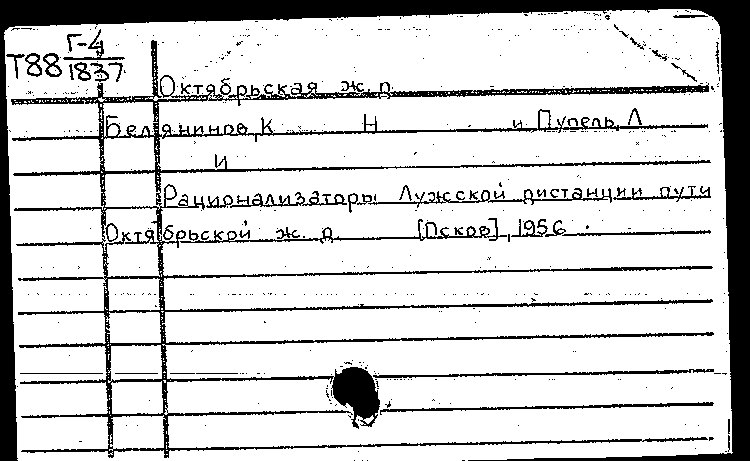 Г-4
Т88 1837
Октябрьская ж. д
Белянинов, К Н и Пупель, Л
И
Рационализаторы Лужской дистанции пути
Октябрьской ж. д [Псков], 1956